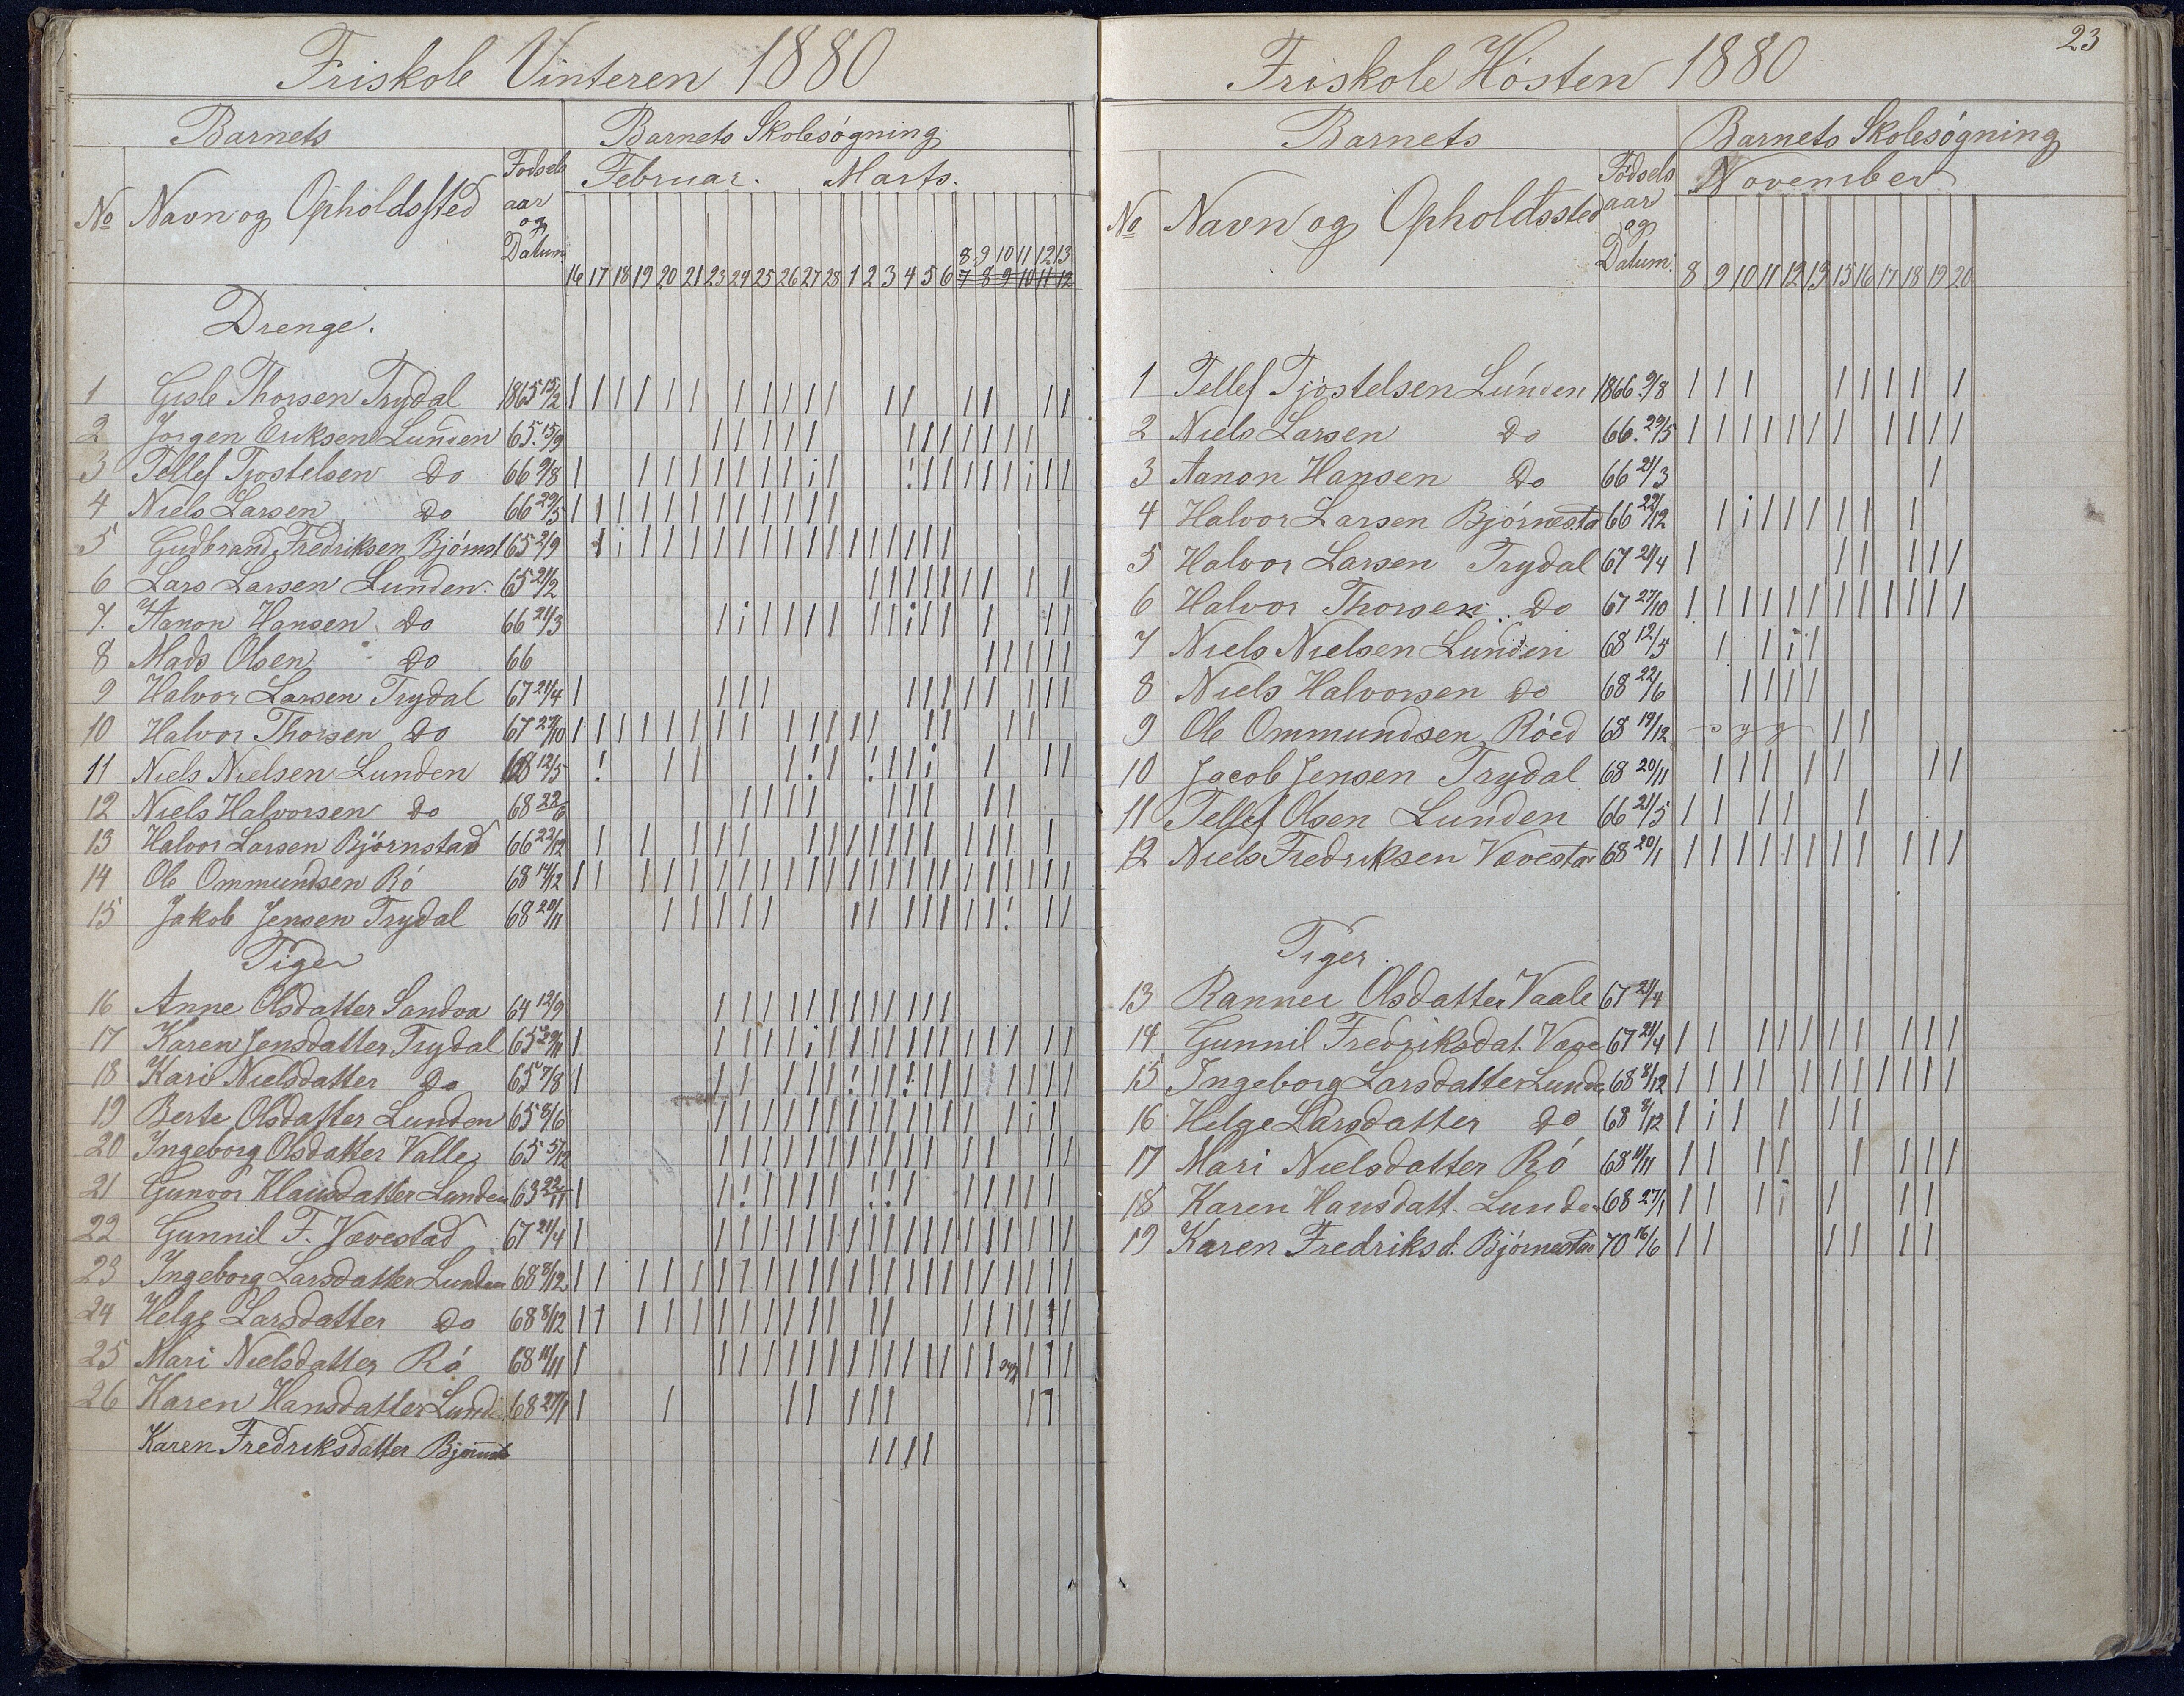 Friskole Vinteren 1880
Barnets
Barnets Skolesøgning
No Navn og Opholdssted
Fødsels aar og Datum.
Februar. Marts.
8 9 10 11 12 13
16 17 18 19 20 21 23 24 25 26 27 28 1 2 3 4 5 6 7 8 9 10 11 12
Drenge.
1 Gisle Thorsen Trydal 1865 15/2
2 Jørgen Eriksen Lunden 65. 15/9
3 Tellef Tjostelsen Do 66 9/8
4 Niels Larsen Do 66 29/5
5 Gudbrand Fredriksen Bjørnst 65 2/9
6 Lars Larsen Lunden. 65 21/2
7. Aanon Hansen Do 66 21/3
8 Mads Olsen Do 66
9 Halvor Larsen Trydal 67 21/4
10 Halvor Thorsen Do 67 27/10
11 Niels Nielsen Lunden 68 12/5
12 Niels Halvorsen Do 68 22/6
13 Halvor Larsen Bjørnstad 66 22/12
14 Ole Ommundsen Rø 68 19/12
15 Jakob Jensen Trydal 68 20/11
Piger
16 Anne Olsdatter Sandva 64 12/9
17 Karen Jensdatter Trydal 65 29/11
18 Kari Nielsdatter Do 65 7/8
19 Berte Olsdatter Lunden 65 8/6
20 Ingeborg Olsdatter Valle 65 5/12
21 Gunvor Klausdatter Lunden 63 22/11
22 Gunnil F. Vævestad 67 21/4
23 Ingeborg Larsdatter Lunden 68 8/12
24 Helge Larsdatter Do 68 8/12
25 Mari Nielsdatter Rø 68 11/11 syg
26 Karen Hansdatter Lunde 68 27/1
Karen Fredriksdatter Bjørnst
23
Friskole Høsten 1880
Barnets
Barnets Skolesøgning
No Navn og Opholdssted
Fødsels aar og Datum.
November
8 9 10 11 12 13 15 16 17 18 19 20
1 Tellef Tjøstelsen Lunden 1866. 9/8
2 Niels Larsen Do 66. 29/5
3 Aanon Hansen Do 66 21/3
4 Halvor Larsen Bjørnesta 66 22/12
5 Halvor Larsen Trydal 67 21/4
6 Halvor Thorsen. Do 67 27/10
7 Niels Nielsen Lunden 68 12/5
8 Niels Halvorsen Do 68 22/6
9 Ole Ommundsen Røed 68 19/12 syg
10 Jacob Jensen Trydal 68 20/11
11 Tellef Olsen Lunden 66 21/5
12 Niels Fredriksen Vævesta 68 20/1
Piger.
13 Rannei Olsdatter Vaale 67 21/4
14 Gunnil Fredriksdat. Væve 67 21/4
15 Ingeborg Larsdatter Lunde 68 8/12
16 Helge Larsdatter Do 68 8/12
17 Mari Nielsdatter Rø 68 11/11
18 Karen Hansdatt. Lunde 68 27/1
19 Karen Fredriksd. Bjørnesta 70 16/6